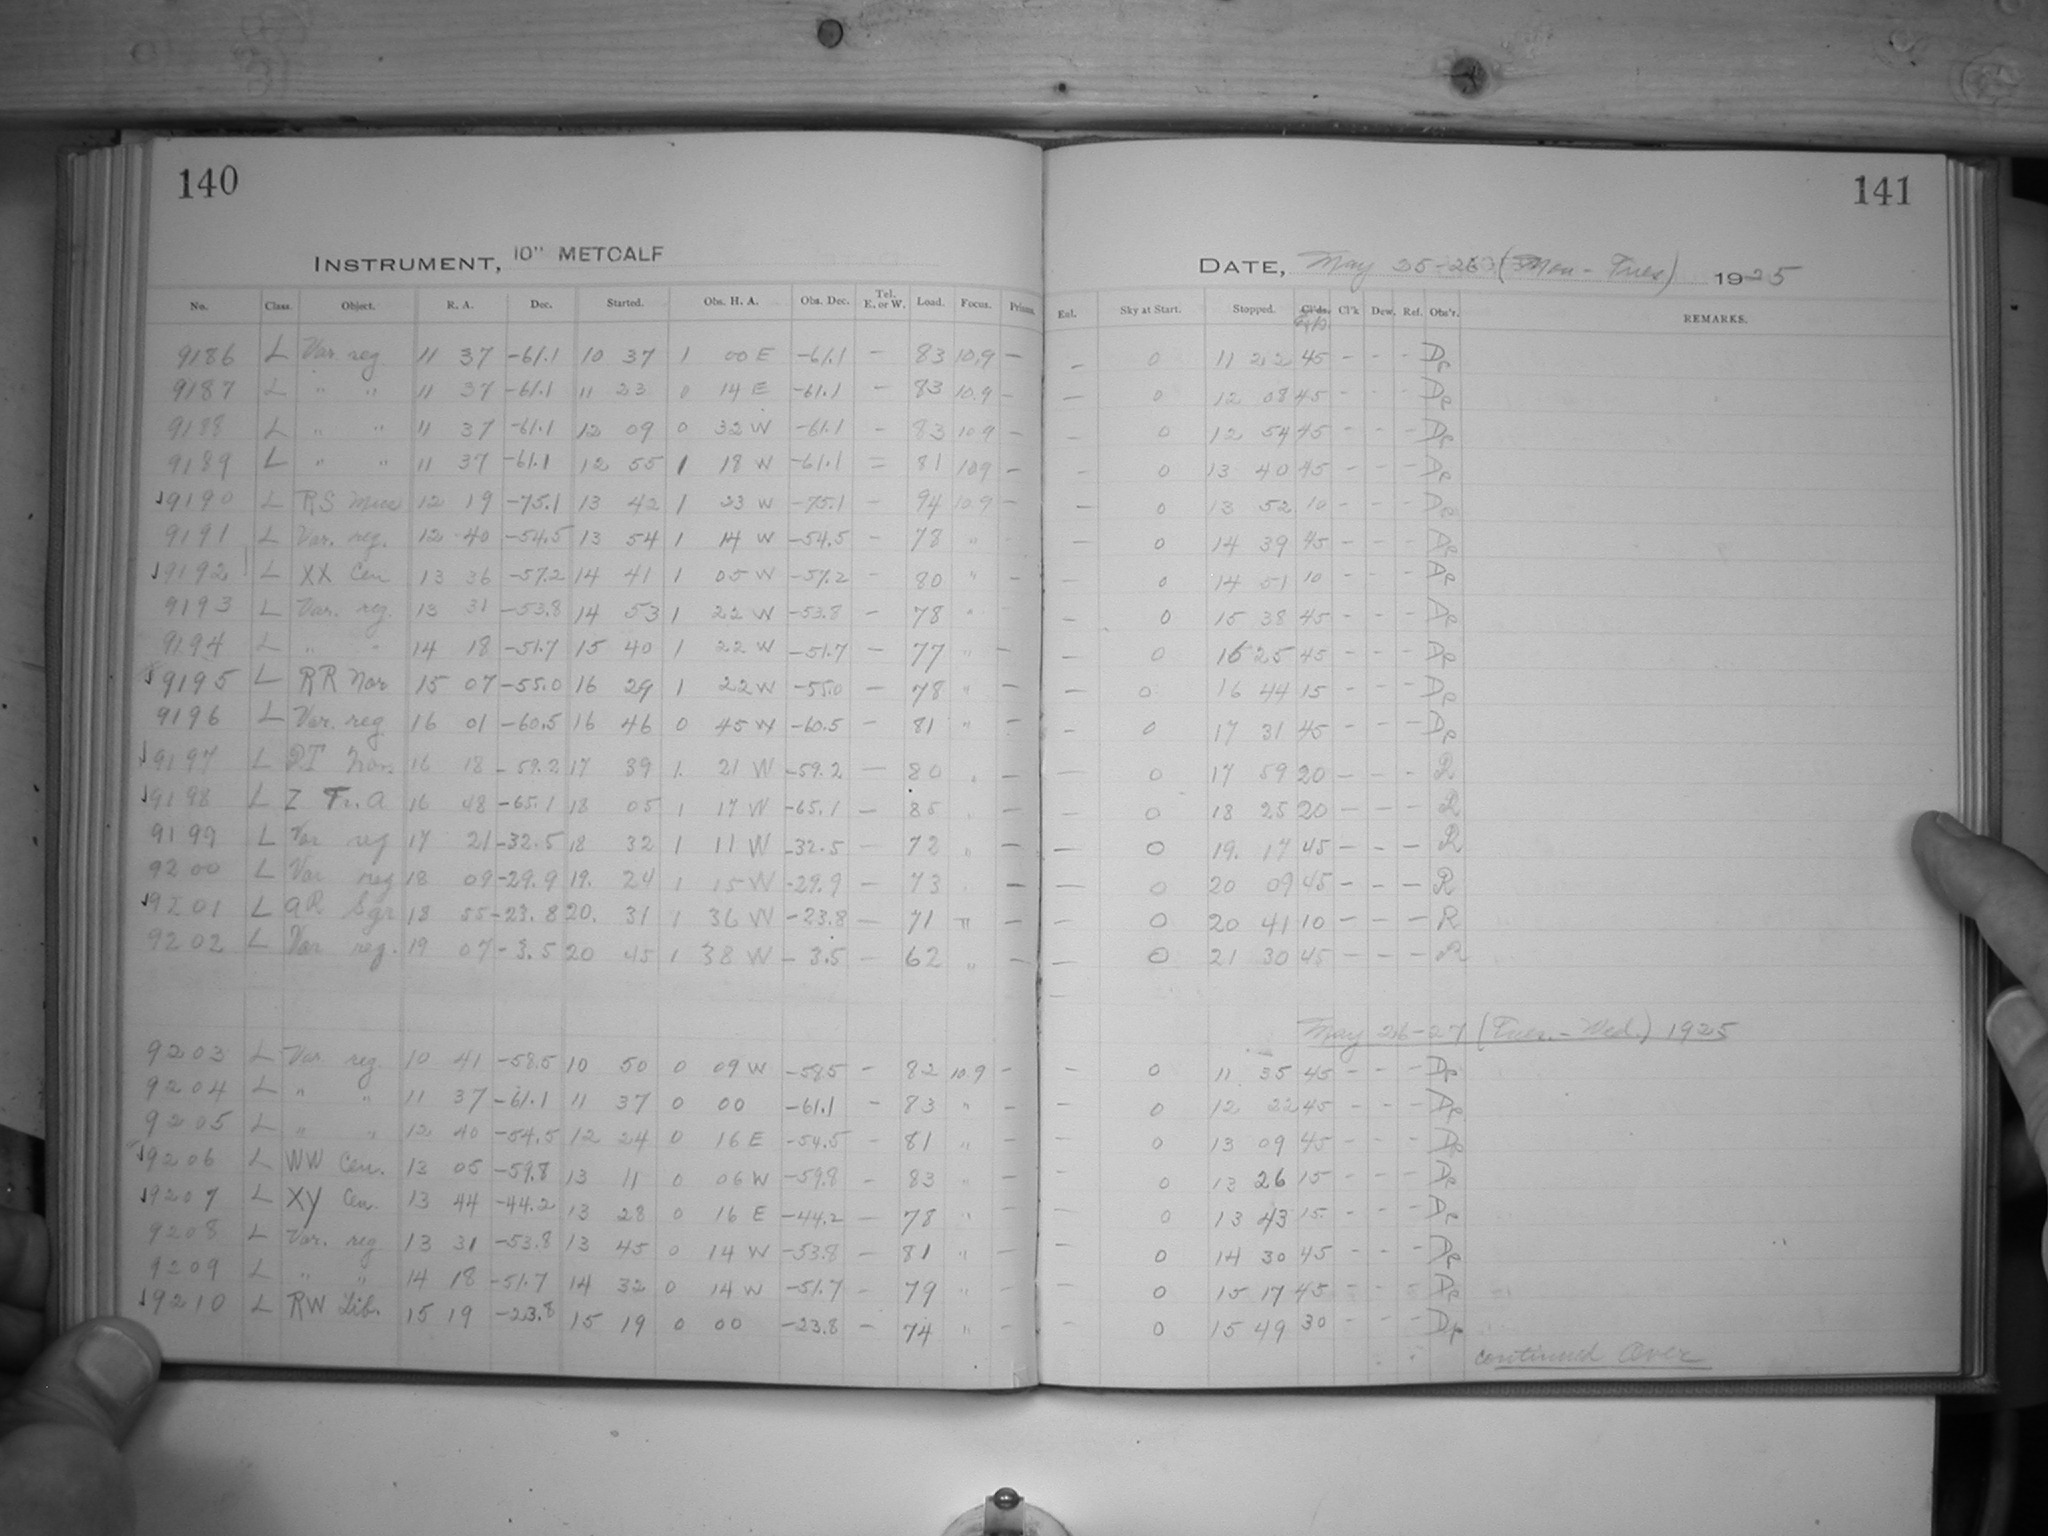 140
141
INSTRUMENT, 10" METCALF
DATE, May 25-26 (Mon - Tues) 1925
No. Class. Object. R. A. Dec. Started. Obs. H. A. Obs. Dec. Tel. E. or W. Load. Focus. Prisms. Eul. Sky at Start. Stopped. Cl'ds. Exp. Cl'k Dew. Ref. Obs'r. REMARKS.
9186 L Var. reg. 11 37 -61.1 10 37 1 00 E -61.1 - 83 10.9 - - 0 11 22 45 - - - De
9187 L " " 11 37 -61.1 11 23 0 14 E -61.1 - 83 10.9 - - 0 12 08 45 - - - De
9188 L " " 11 37 -61.1 12 09 0 32 W -61.1 - 83 10.9 - - 0 12 54 45 - - - De
9189 L " " 11 37 -61.1 12 55 1 18 W -61.1 = 81 10.9 - - 0 13 40 45 - - - De
√9190 L RS Mus 12 19 -75.1 13 42 1 23 W -75.1 - 94 10.9 - - 0 13 52 10 - - - De
9191 L Var. reg. 12 40 -54.5 13 54 1 14 W -54.5 - 78 " - - 0 14 39 45 - - - De
√9192 L XX Cen 13 36 -57.2 14 41 1 05 W -57.2 - 80 " - - 0 14 51 10 - - - De
9193 L Var. reg. 13 31 -53.8 14 53 1 22 W -53.8 - 78 " - - 0 15 38 45 - - - De
9194 L " " 14 18 -51.7 15 40 1 22 W -51.7 - 77 " - - 0 16 25 45 - - - De
√9195 L RR Nor 15 07 -55.0 16 29 1 22 W -55.0 - 78 " - - 0 16 44 15 - - - De
9196 L Var. reg 16 01 -60.5 16 46 0 45 W -60.5 - 81 " - - 0 17 31 45 - - - De
√9197 L RT Nor 16 18 -59.2 17 39 1. 21 W -59.2 - 80 " - - 0 17 59 20 - - - R
√9198 L Z Tr.A 16 48 -65.1 18 05 1 17 W -65.1 - 85 " - - 0 18 25 20 - - - R
9199 L Var reg 17 21 -32.5 18 32 1 11 W -32.5 - 72 " - - 0 19. 17 45 - - - R
9200 L Var reg 18 09 -29.9 19. 24 1 15 W -29.9 - 73 " - - 0 20 09 45 - - - R
√9201 L Sgr 18 55 -23.8 20. 31 1 36 W -23.8 - 71 " - - 0 20 41 10 - - - R
9202 L Var reg. 19 07 -3.5 20 45 1 38 W -3.5 - 62 " - - 0 21 30 45 - - - R
May 26-27 (Tues. - Wed.) 1925
9203 L Var. reg. 10 41 -58.5 10 50 0 09 W -58.5 - 82 10.9 - - 0 11 35 45 - - - De
9204 L " " 11 37 -61.1 11 37 0 00 -61.1 - 83 " - - 0 12 22 45 - - - De
9205 L " " 12 40 -54.5 12 24 0 16 E -54.5 - 81 " - - 0 13 09 45 - - - De
√9206 L WW Cen. 13 05 -59.8 13 11 0 06 W -59.8 - 83 " - - 0 13 26 15 - - - De
√9207 L XY Cen. 13 44 -44.2 13 28 0 16 E -44.2 - 78 " - - 0 13 43 15 - - - De
9208 L Var. reg 13 31 -53.8 13 45 0 14 W -53.8 - 81 " - - 0 14 30 45 - - - De
9209 L " " 14 18 -51.7 14 32 0 14 W -51.7 - 79 " - - 0 15 17 45 - - - De
√9210 L RW Lib. 15 19 -23.8 15 19 0 00 -23.8 - 74 " - - 0 15 49 30 - - - De
continued Over